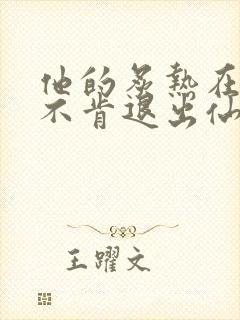 他的炙热在
不肯退出仙
王躍文